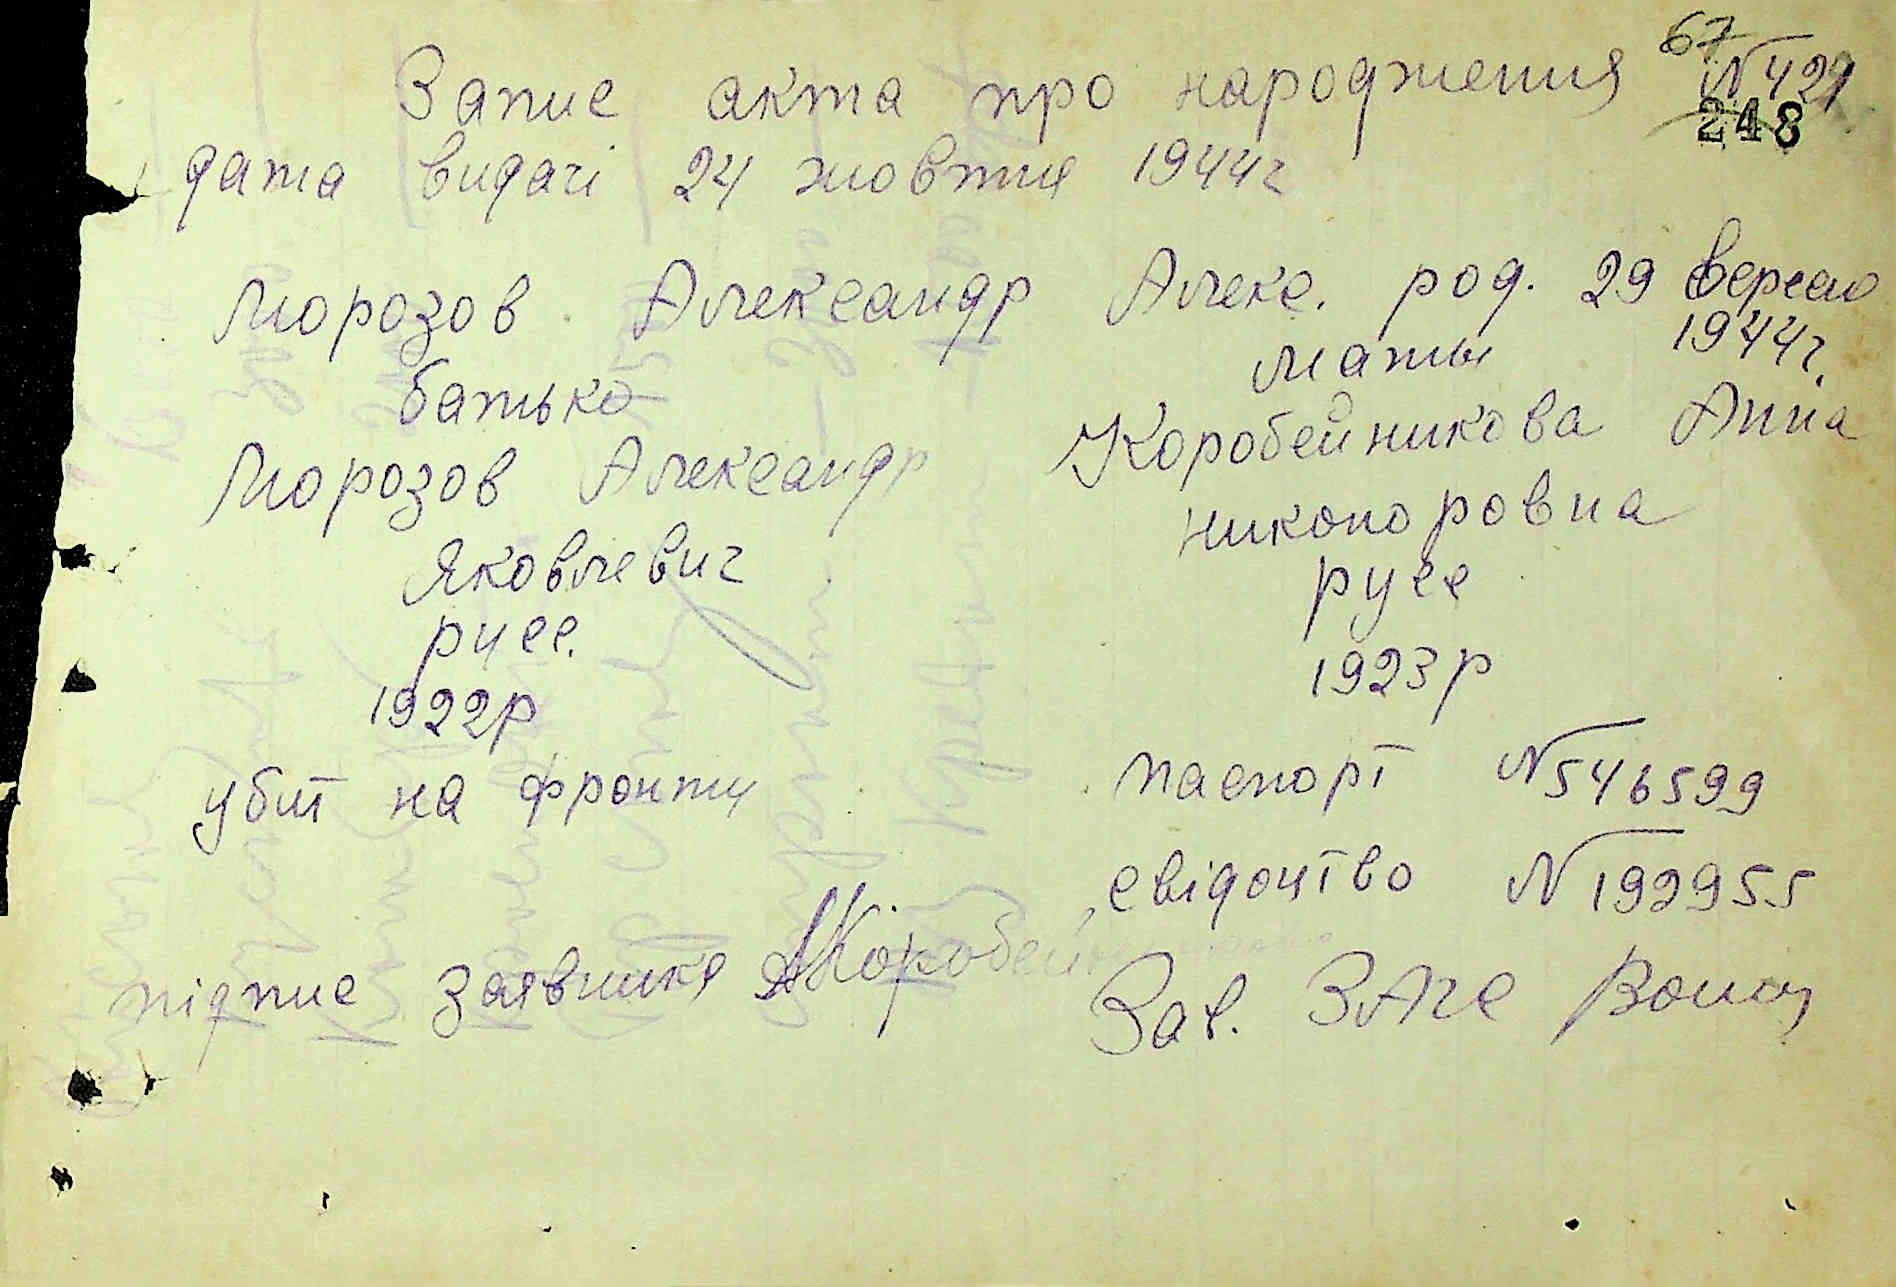 67
Запис акта про народження №429
248
дата видачі 24 жовтня 1944г
Морозов Александр Алекс. род. 29 вересню
1944г.
батько
маты
Морозов Александр
Коробейникова Анна
Яковлевич
никоноровна
русс.
русс
1922р
1923р
убит на фронту
паспорт №546599
свідоцтво №192955
підпис заявника АКоробейн
Зав. ЗАГС